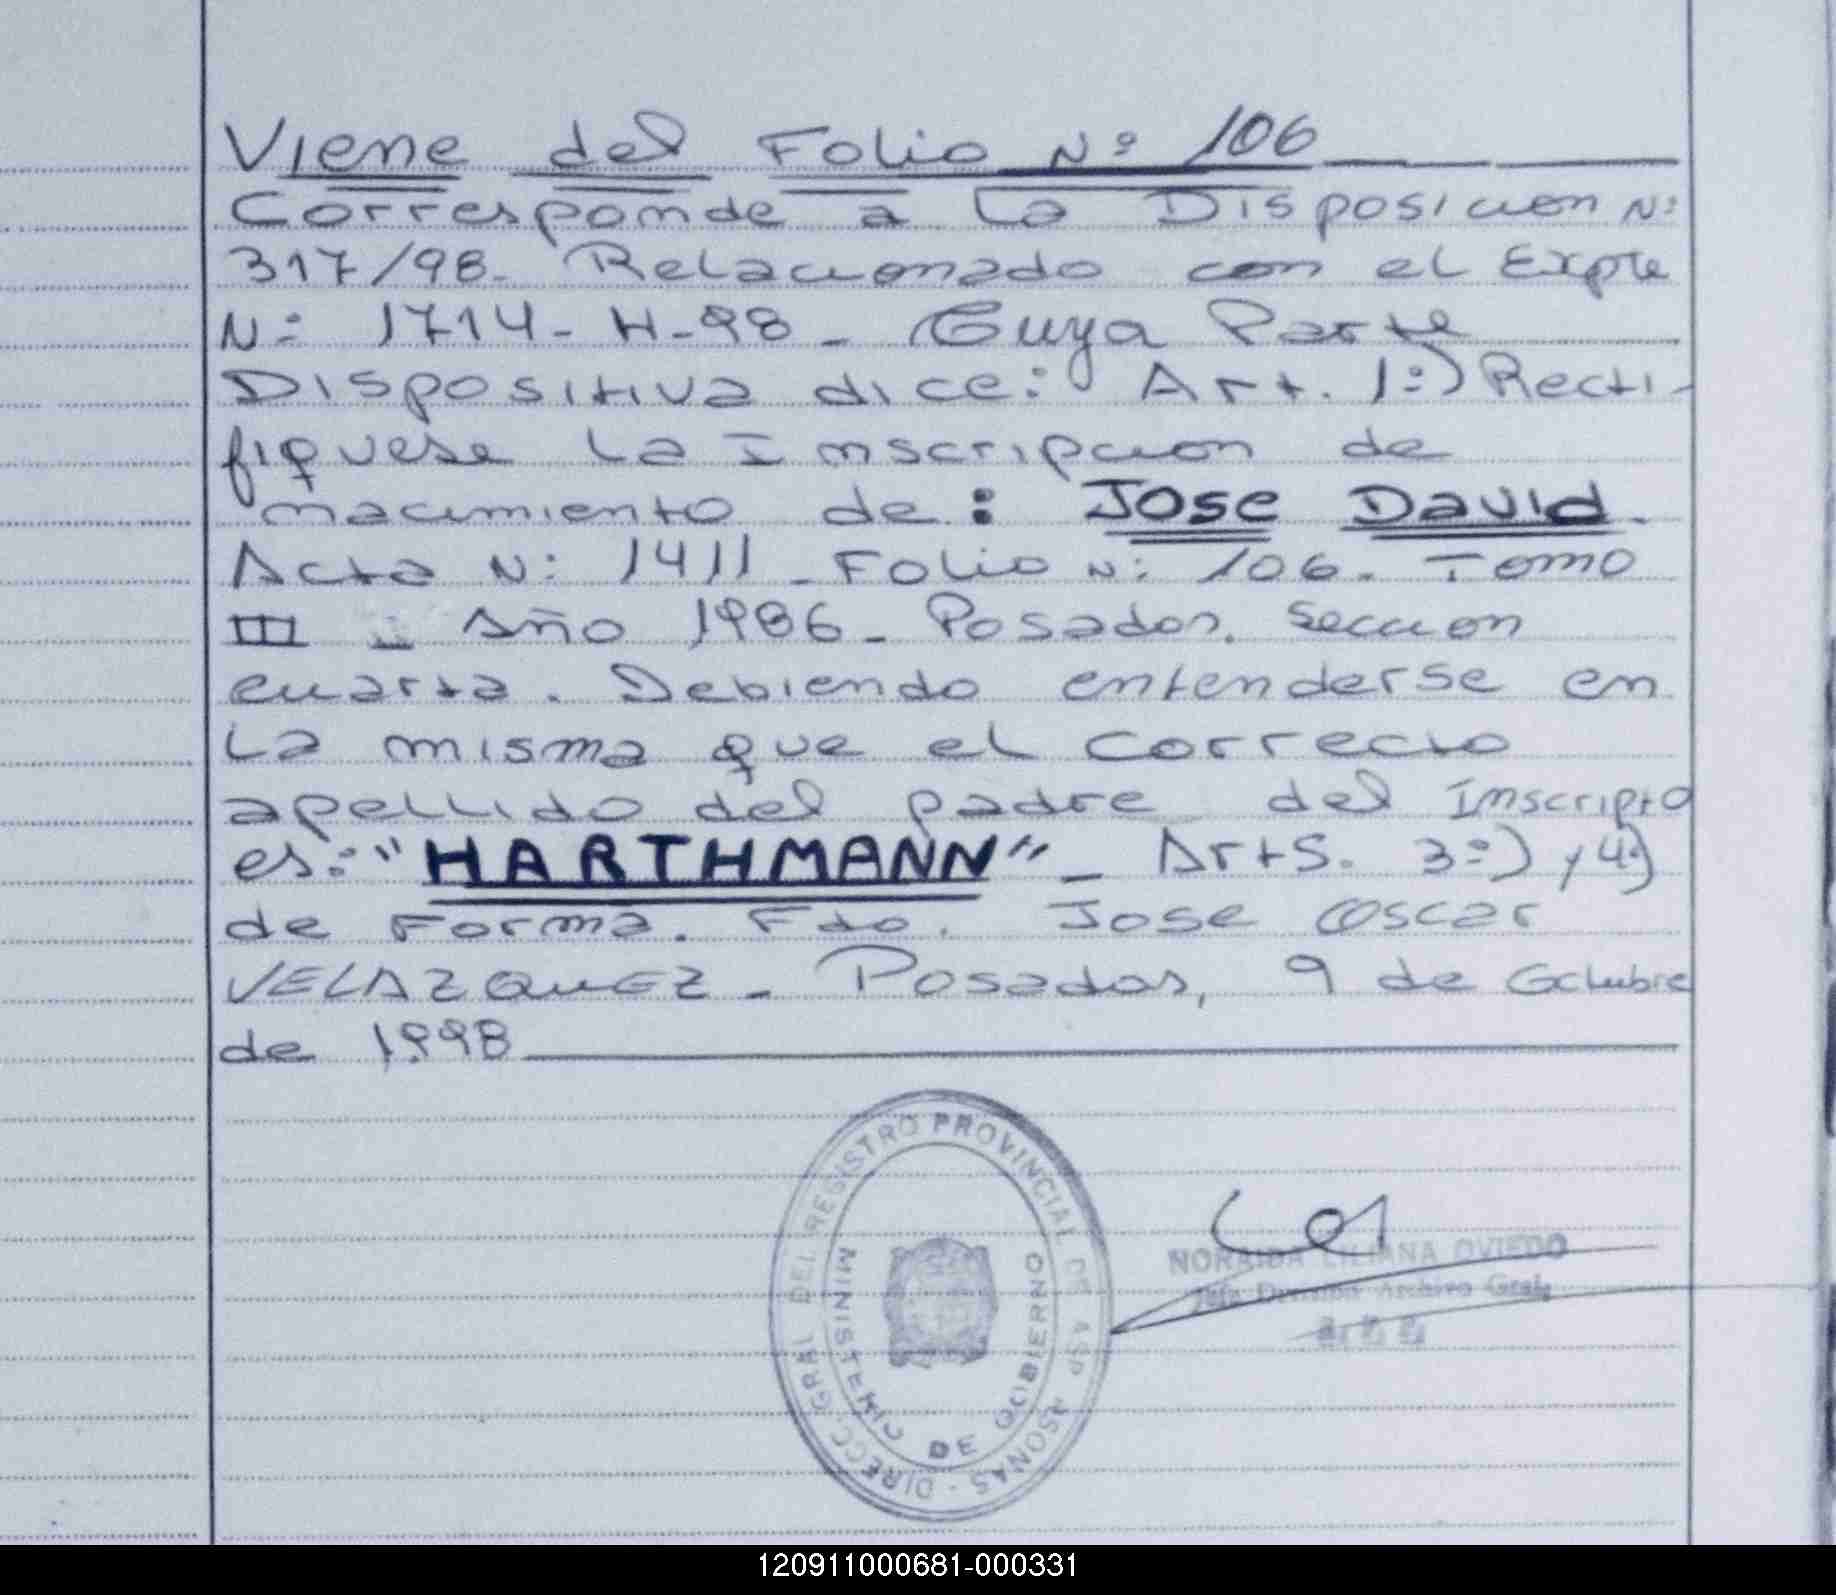 Viene del Folio Nº 106
Corresponde a la Disposicion Nº
317/98- Relacionado con el Expte
Nº 1714-H-98- Cuya Parte
Dispositiva dice: Art. 1º) Recti-
fiquese la Inscripcion de
nacimiento de: Jose David.
Acta Nº: 1411 - Folio Nº: 106. Tomo
III - Año 1986- Posadas. Seccion
cuarta. Debiendo entenderse en
la misma que el correcto
apellido del padre del Inscripto
es: "HARTHMANN" - Arts. 3º) y 4º)
de Forma. Fdo. Jose Oscar
VELAZQUEZ - Posadas, 9 de Octubre
de 1998
DIRECC. GRAL DEL REGISTRO PROVINCIAL DE LAS PERSONAS -
MINISTERIO DE GOBIERNO
NORAIDA LILIANA OVIEDO
Jefe Division Archivo Gral.
120911000681-000331